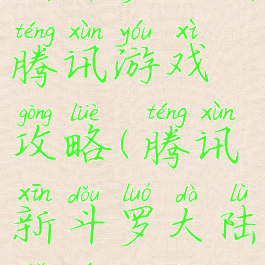 téng xùn yóu xì
腾讯游戏
gōng lüè téng xùn
攻略(腾讯
xīn dǒu luó dà lù
新斗罗大陆